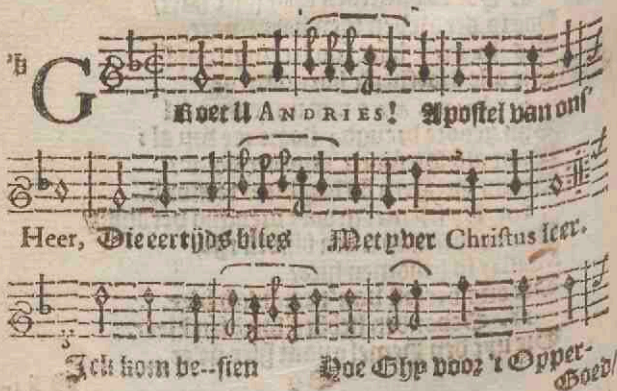 Groet U ANDRIES! Apostel van ons'
Heer, Die eertijds blies Met yver Christus leer.
Ick kom be--sien Hoe Ghy voor 't Opper-
Goed/